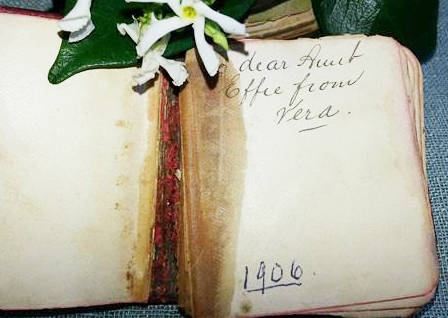 dear Aunt
Effie from
Vera.
1906.